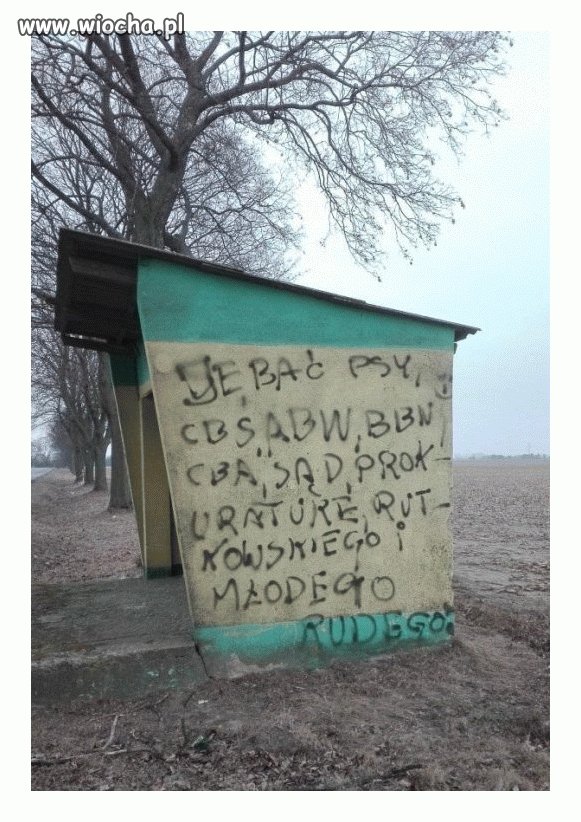 www.wiocha.pl
JĘBAĆ PSY,
CBŚ, ABW, BBN,
CBA, SĄD, PROK-
URATURĘ, RUT-
KOWSKIEGO i
MŁODEGO
RUDEGO!